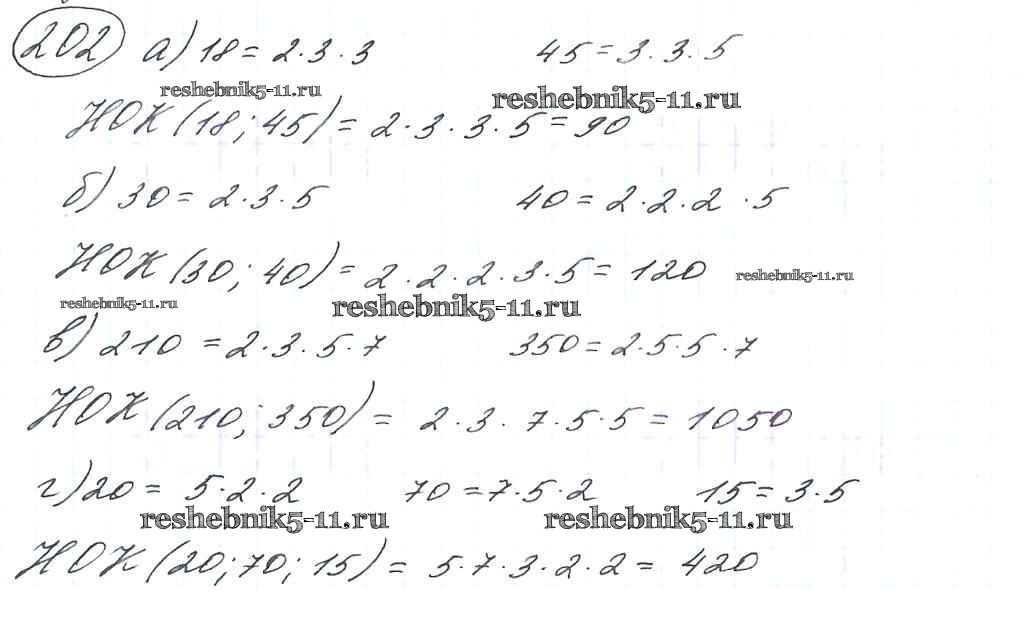 202 а) 18 = 2·3·3 45 = 3·3·5
reshebnik5-11.ru reshebnik5-11.ru
НОК (18; 45) = 2·3·3·5 = 90
б) 30 = 2·3·5 40 = 2·2·2·5
НОК (30; 40) = 2·2·2·3·5 = 120 reshebnik5-11.ru
reshebnik5-11.ru reshebnik5-11.ru
в) 210 = 2·3·5·7 350 = 2·5·5·7
НОК (210; 350) = 2·3·7·5·5 = 1050
г) 20 = 5·2·2 70 = 7·5·2 15 = 3·5
reshebnik5-11.ru reshebnik5-11.ru
НОК (20; 70; 15) = 5·7·3·2·2 = 420